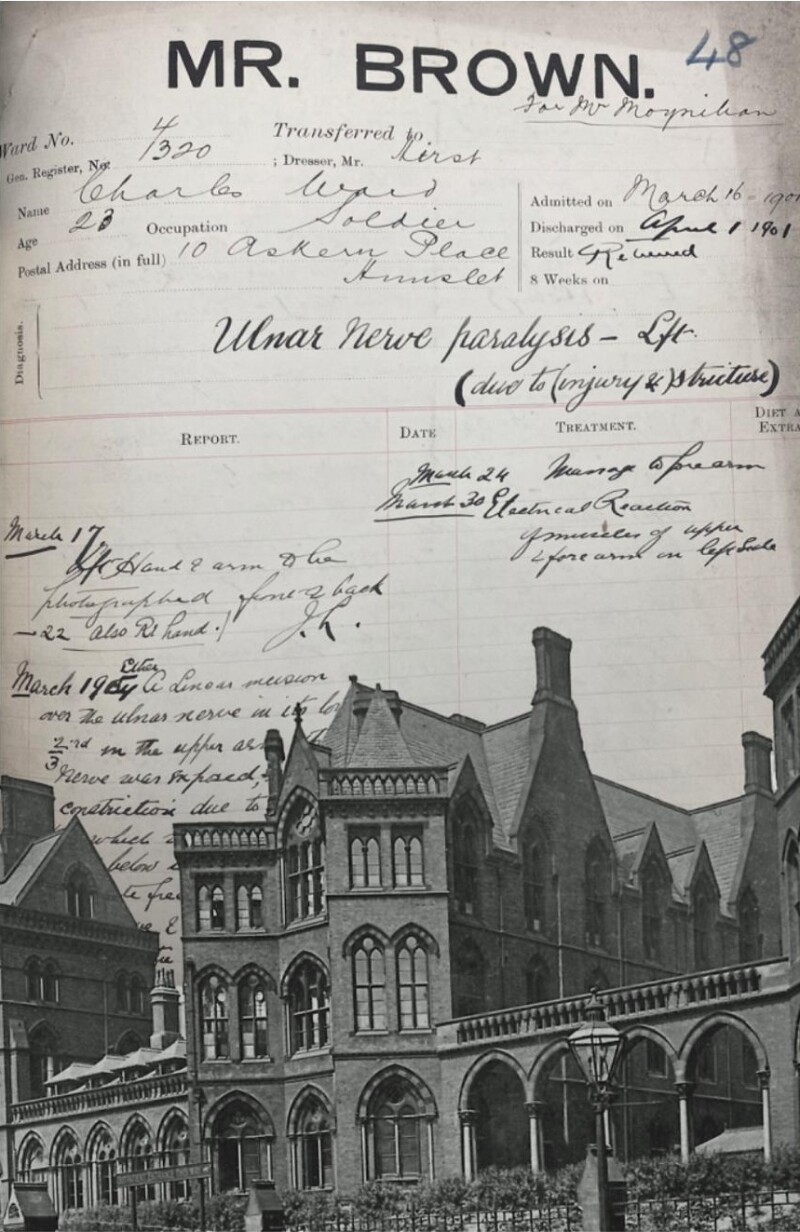 MR. BROWN.
48
For Mr Moynihan
Ward No. 4
Transferred to
Gen. Register, No. 1320
; Dresser, Mr. Hirst
Name Charles Ward
Age 23 Occupation Soldier
Postal Address (in full) 10 Askern Place
Hunslet
Admitted on March 16 - 1901
Discharged on April 1 1901
Result Relieved
8 Weeks on
Diagnosis.
Ulnar Nerve paralysis - Lft.
(due to (injury &) stricture)
REPORT.
DATE
TREATMENT.
DIET A
EXTRA
March 24 Massage to forearm
March 30 Electrical Reaction
of muscles of upper
& forearm on left side
March 17
Lft Hand & arm to be
photographed fone & back
-22 also Rt hand.
March 19 Ether A Linear incision
over the ulnar nerve in its lo
2/3rd in the upper ar
Nerve was exposed,
constriction due to
which
below
free